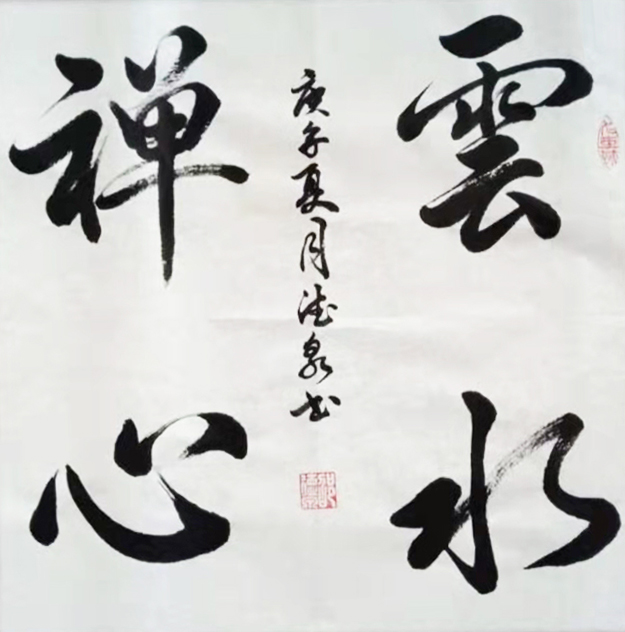 雲水
禅心
庚子夏月德泉书